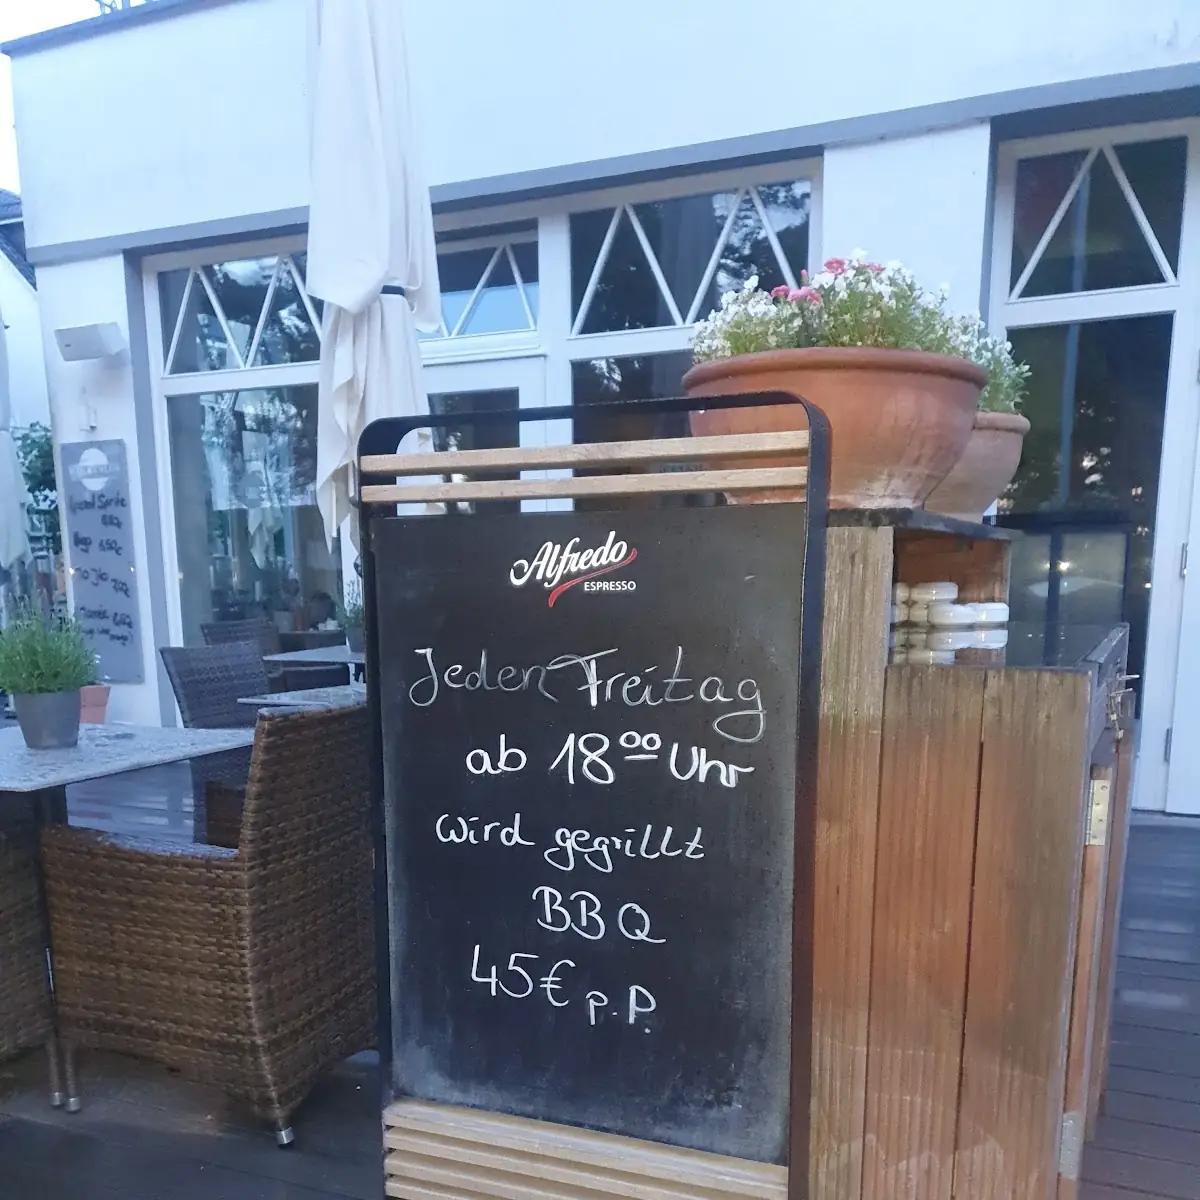 Alfredo
ESPRESSO
Jeden Freitag
ab 18 00 Uhr
wird gegrillt
BBQ
45€ p.P.